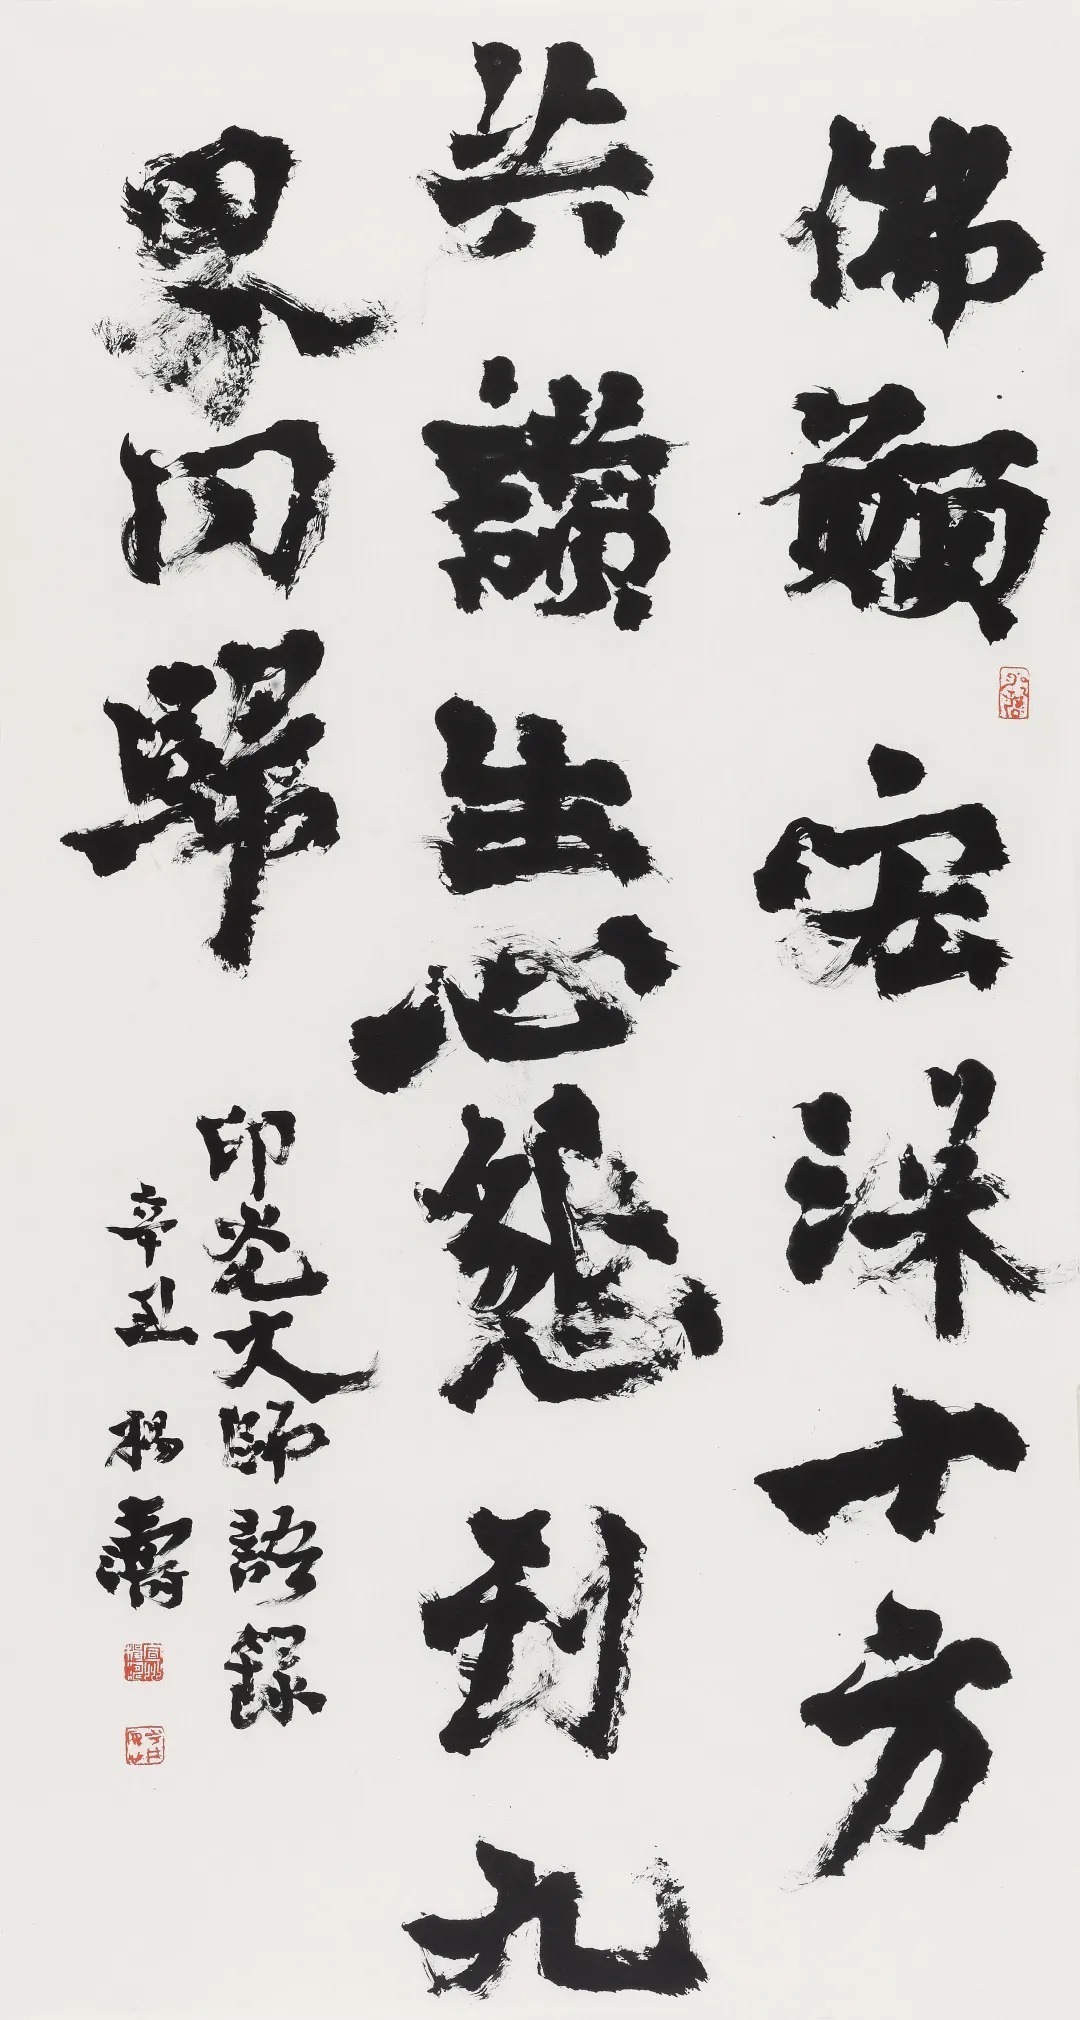 佛願宏深十方
共讚生心態到九
界同歸
印光大師語錄
辛丑 楊濤